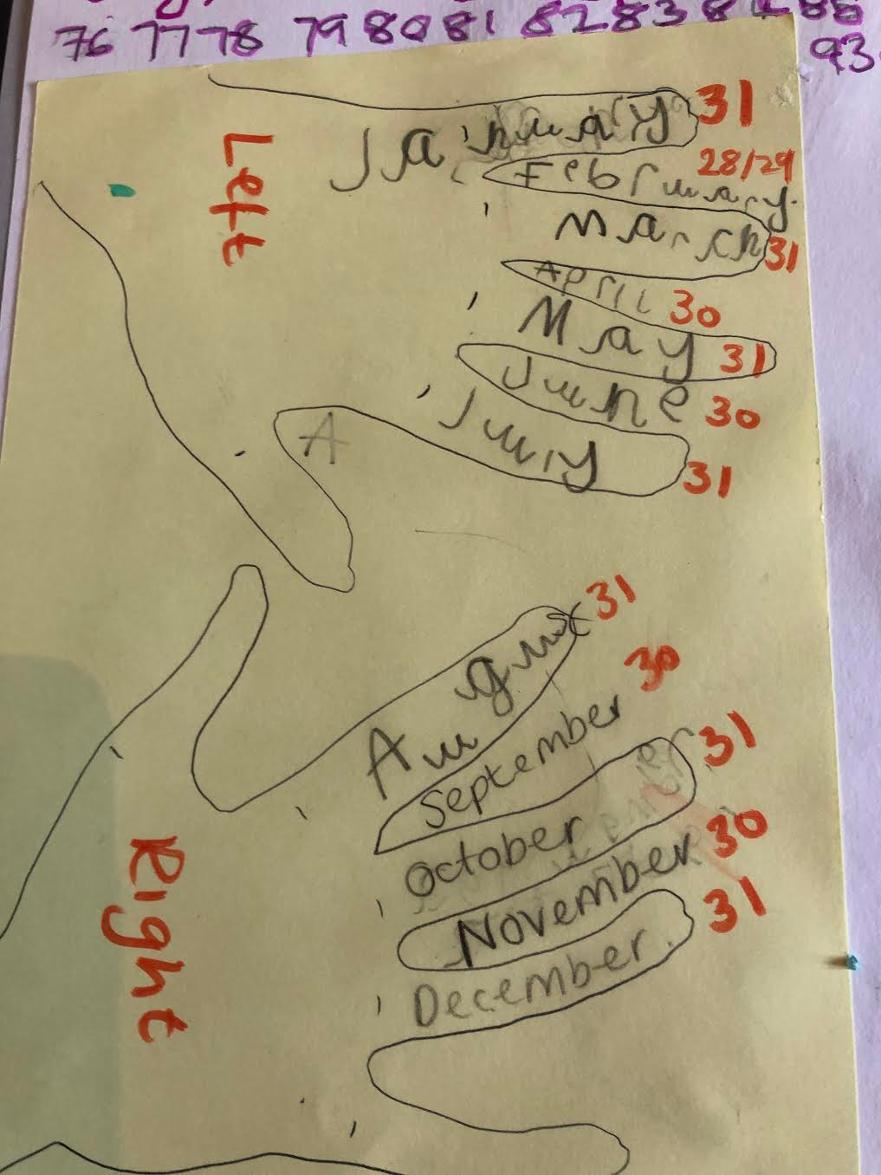 76 77 78 79 80 81 82 83 8
93
Left
January 31
February 28/29
March 31
April 30
May 31
June 30
July 31
A
August 31
September 30
October 31
November 30
December. 31
Right